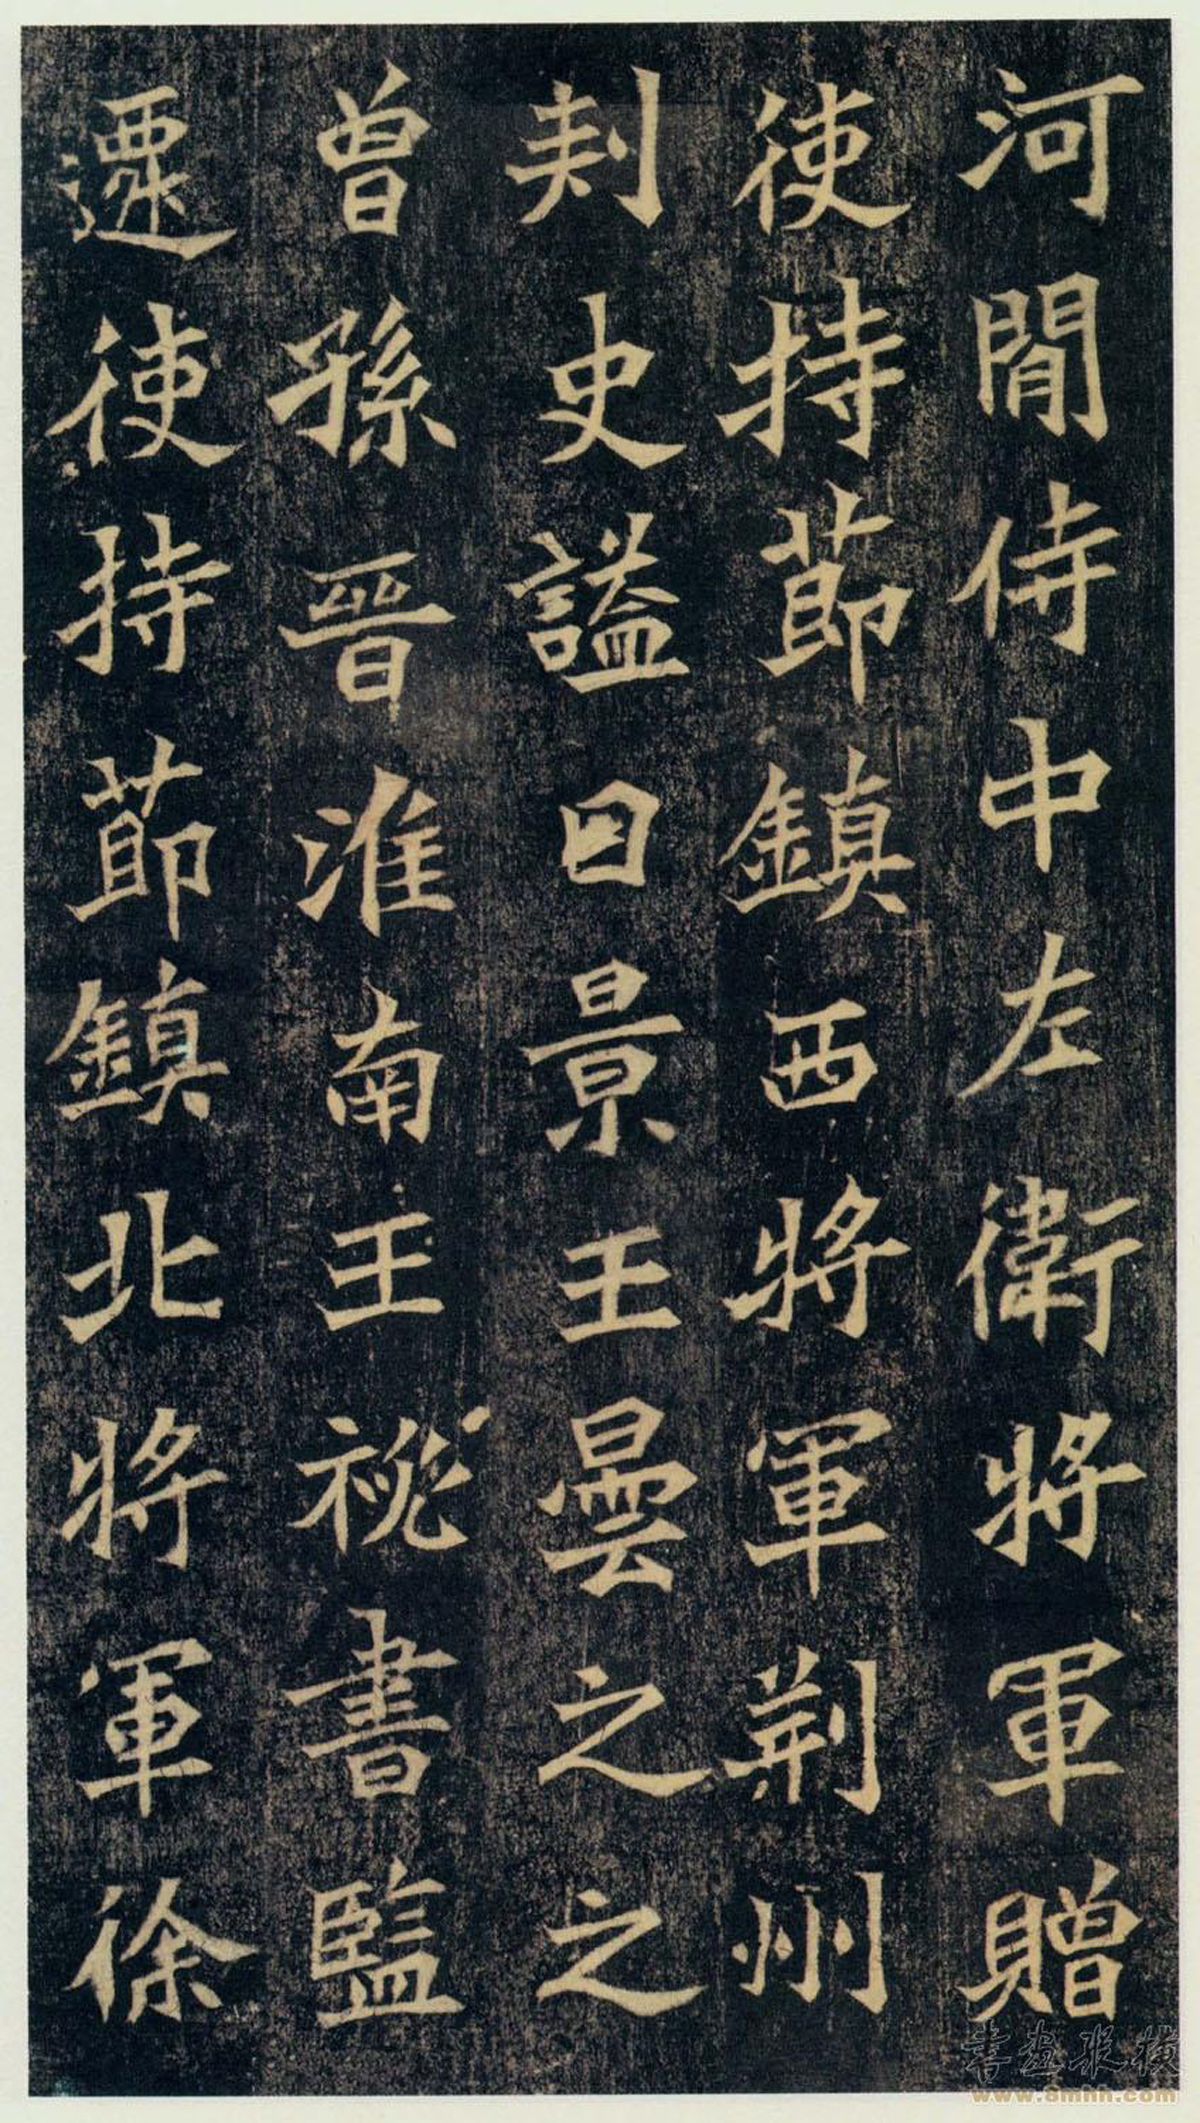 河間侍中左衛將軍贈
使持節鎮西將軍荊州
刾史謚曰景王曇之之
曾孫晉淮南王祕書監
遷使持節鎮北將軍徐
書畫縱橫
www.8mhh.com